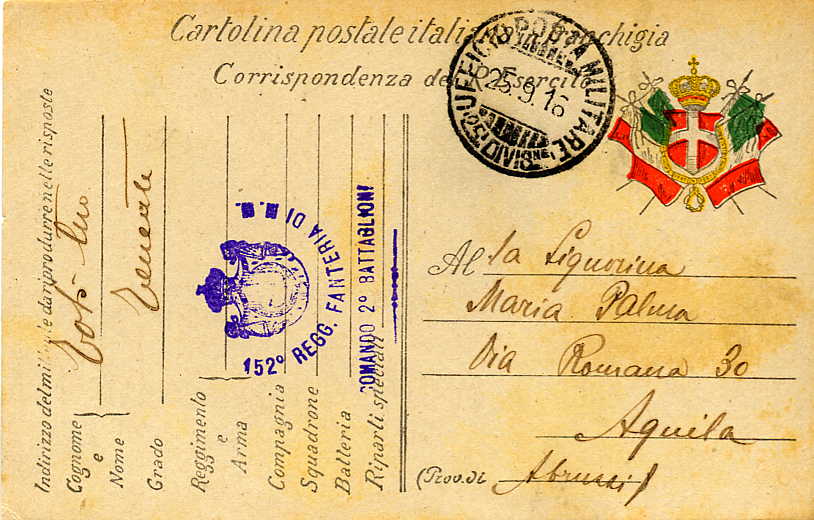 Cartolina postale italiana in franchigia
Corrispondenza del R. Esercito
UFFICIO POSTA MILITARE
25.9.16
(25ª DIVISIONE)
Al la Signorina
Maria Palma
Via Romana 30
Aquila
(Prov. di Abruzzi)
Indirizzo del mil e da riprodurre nelle risposte
Cognome
e
Nome
Grado
Tenente
Reggimento
e
Arma
Compagnia
Squadrone
Batteria
Riparti speciali
152º REGG. FANTERIA DI M.M.
COMANDO 2º BATTAGLIONE